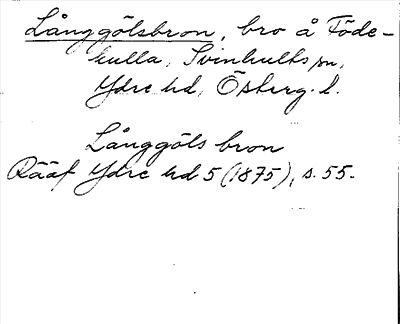 Långgölsbron, bro å Föde-
kulla, Svinhults sn,
Ydre hd, Österg. l.
Långgöls bron
Rääf Ydre hd 5 (1875), s. 55.